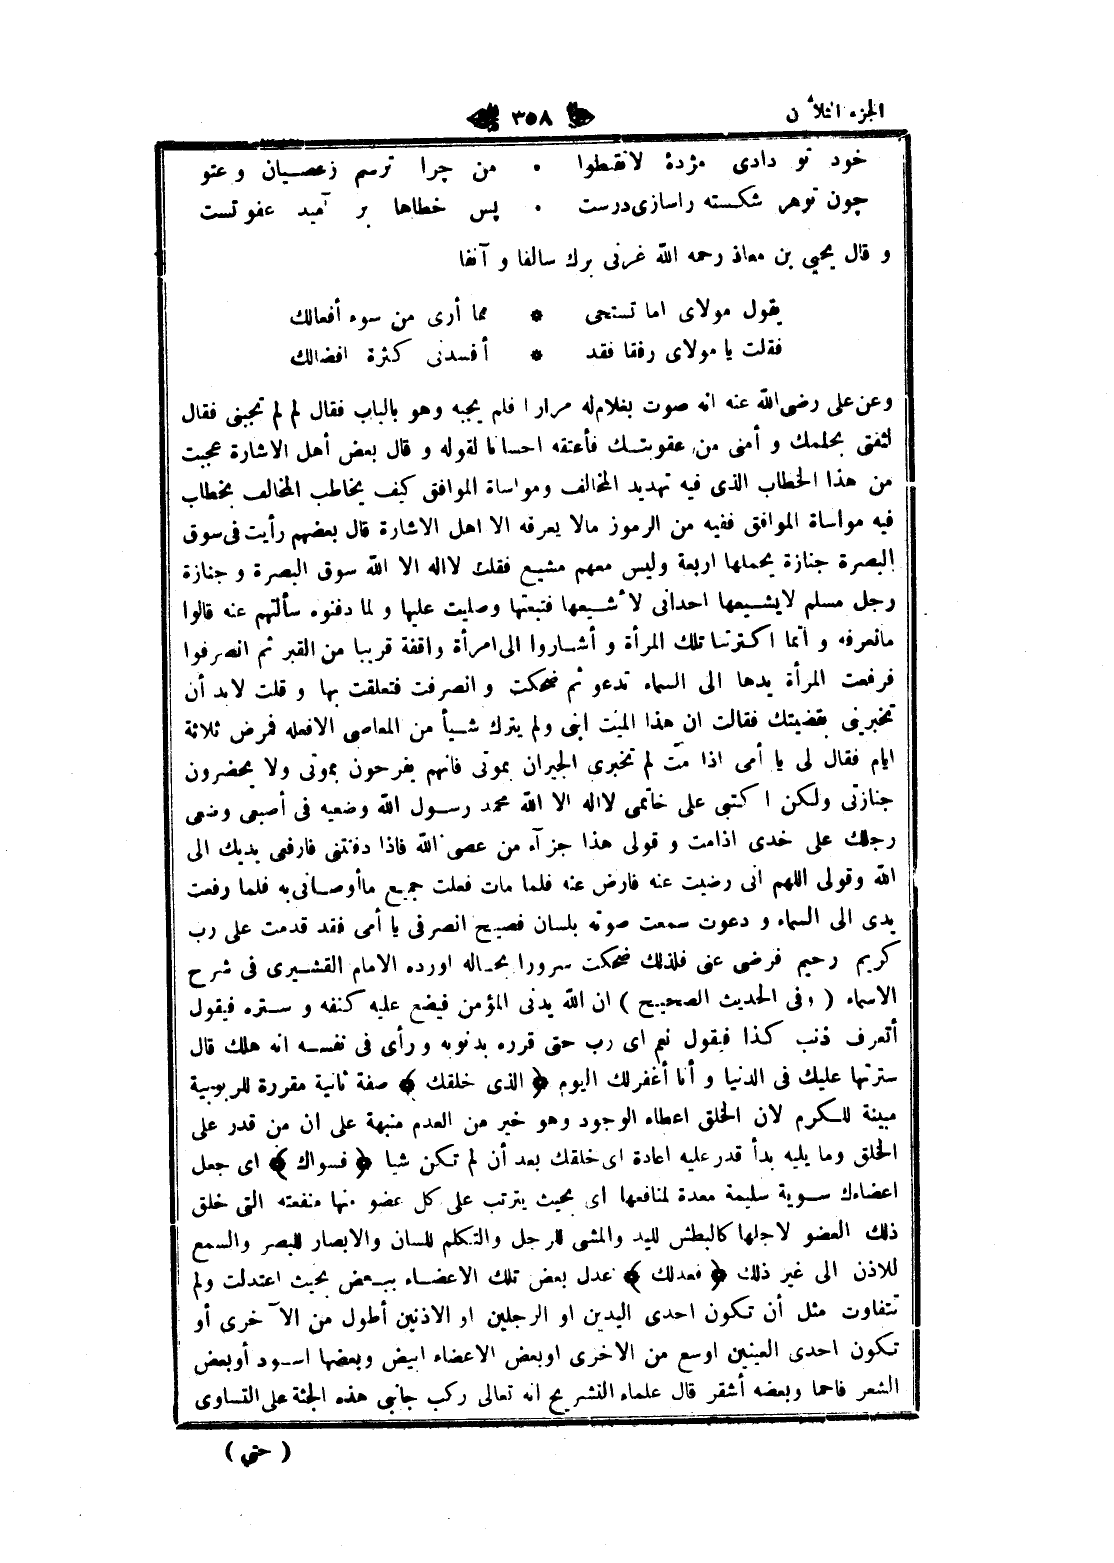 الجزء الثلاثون ٣٥٨
خود تو دادى مژدهٔ لاتقنطوا . من چرا ترسم زعصيان وعتو
چون توهر شكسته راسازى درست . پس خطاها بر اميد عفو تست
و قال يحيى بن معاذ رحمه الله غرنى برك سالفا و آنفا
يقول مولاى اما تستحى * مما أرى من سوء أفعالك
فقلت يا مولاى رفقا فقد * أفسدنى كثرة افضالك
وعن على رضى الله عنه انه صوت بغلام له مرارا فلم يجبه وهو بالباب فقال لم لم تجبنى فقال
لثقتى بحلمك و أمنى من عقوبتك فأعتقه احسانا لقوله و قال بعض أهل الاشارة عجبت
من هذا الخطاب الذى فيه تهديد المخالف ومواساة الموافق كيف يخاطب المخالف بخطاب
فيه مواساة الموافق ففيه من الرموز مالا يعرفه الا اهل الاشارة قال بعضهم رأيت فى سوق
البصرة جنازة يحملها اربعة وليس معهم مشيع فقلت لااله الا الله سوق البصرة و جنازة
رجل مسلم لايشيعها احدانى لأشيعها فتبعتها وصليت عليها و لما دفنوه سألتهم عنه قالوا
مانعرفه و انما اكترتنا تلك المرأة و أشاروا الى امرأة واقفة قريبا من القبر ثم انصرفوا
فرفعت المرأة يدها الى السماء تدعو ثم ضحكت و انصرفت فتعلقت بها و قلت لابد أن
تخبرينى بقضيتك فقالت ان هذا الميت ابنى ولم يترك شيأ من المعاصى الافعله فمرض ثلاثة
ايام فقال لى يا أمى اذا مت لم تخبرى الجيران بموتى فانهم يفرحون بموتى ولا يحضرون
جنازتى ولكن اكتبى على خاتمى لااله الا الله محمد رسول الله وضعيه فى أصبعى وضعى
رجلك على خدى اذامت و قولى هذا جزآء من عصى الله فاذا دفنتنى فارفعى يديك الى
الله وقولى اللهم انى رضيت عنه فارض عنه فلما مات فعلت جميع ماأوصانى به فلما رفعت
يدى الى السماء و دعوت سمعت صوته بلسان فصيح انصرفى يا أمى فقد قدمت على رب
كريم رحيم فرضى عنى فلذلك ضحكت سرورا بحاله اورده الامام القشيرى فى شرح
الاسماء ( وفى الحديث الصحيح ) ان الله يدنى المؤمن فيضع عليه كنفه و ستره فيقول
أتعرف ذنب كذا فيقول نعم اى رب حتى قرره بذنوبه و رأى فى نفسه انه هلك قال
سترتها عليك فى الدنيا و أنا أغفرلك اليوم ﴿ الذى خلقك ﴾ صفة ثانية مقررة للربوبية
مبينة للكرم لان الخلق اعطاء الوجود وهو خير من العدم منبهة على ان من قدر على
الخلق وما يليه بدأ قدر عليه اعادة اى خلقك بعد أن لم تكن شيا ﴿ فسواك ﴾ اى جعل
اعضاءك سوية سليمة معدة لمنافعها اى بحيث يترتب على كل عضو منها منفعته التى خلق
ذلك العضو لاجلها كالبطش لليد والمشى للرجل والتكلم للسان والابصار للبصر والسمع
للاذن الى غير ذلك ﴿ فعدلك ﴾ عدل بعض تلك الاعضاء ببعض بحيث اعتدلت ولم
تتفاوت مثل أن تكون احدى اليدين او الرجلين او الاذنين أطول من الآخرى أو
تكون احدى العينين اوسع من الاخرى اوبعض الاعضاء ابيض وبعضها اسود أوبعض
الشعر فاحما وبعضه أشقر قال علماء التشريح انه تعالى ركب جانبى هذه الجثة على التساوى
( حتى )